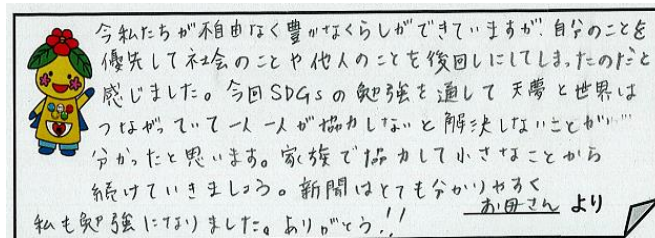 今私たちが不自由なく豊かなくらしができていますが、自分のことを
優先して社会のことや他人のことを後回しにしてしまったのだと
感じました。今回SDGsの勉強を通して天夢と世界は
つながっていて一人一人が協力しないと解決しないことが
分かったと思います。家族で協力して小さなことから
続けていきましょう。新聞はとても分かりやすく
お母さん より
私も勉強になりました。ありがとう!!